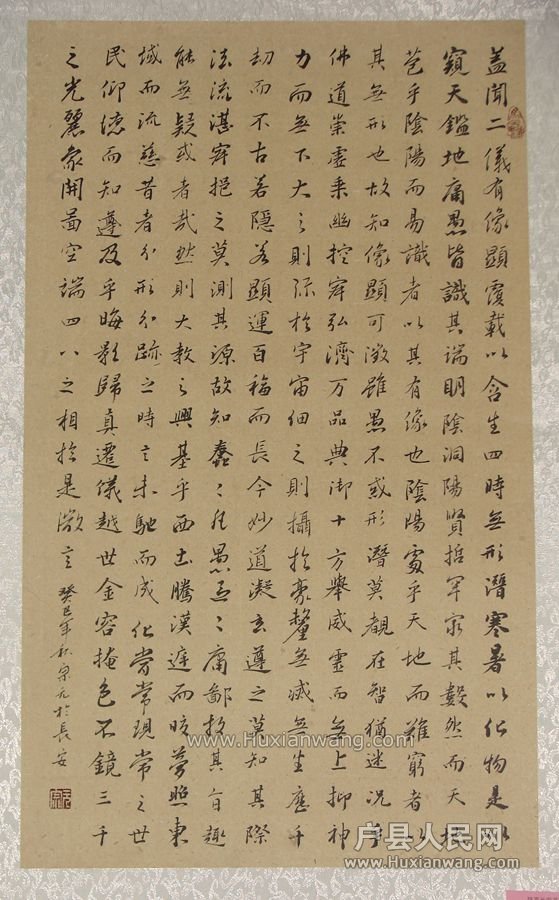 盖聞二儀有像顯覆載以含生四時無形潛寒暑以化物是以
窺天鑑地庸愚皆識其端明陰洞陽賢哲罕窮其數然而天地
苞乎陰陽而易識者以其有像也陰陽處乎天地而難窮者以
其無形也故知像顯可徵雖愚不惑形潛莫覩在智猶迷況乎
佛道崇虛乘幽控寂弘濟万品典御十方舉威靈而無上抑神
力而無下大之則弥於宇宙細之則攝於豪釐無滅無生歷千
劫而不古若隱若顯運百福而長今妙道凝玄遵之莫知其際
法流湛寂挹之莫測其源故知蠢蠢凡愚區區庸鄙投其旨趣
能無疑或者哉然則大教之興基乎西土騰漢庭而皎夢照東
域而流慈昔者分形分跡之時言未馳而成化當常現常之世
民仰德而知遵及乎晦影歸真遷儀越世金容掩色不鏡三千
之光麗象開圖空端四八之相於是微言 癸巳年秋宗元於長安
www.Huxianwang.com
户县人民网
www.Huxianwang.com